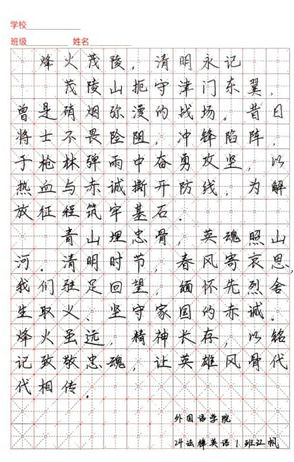 学校
班级 姓名
烽火茂陵，清明永记
茂陵山扼守津门东翼，
曾是硝烟弥漫的战场。昔日
将士不畏险阻，冲锋陷阵，
于枪林弹雨中奋勇攻坚，以
热血与赤诚撕开防线，为解
放征程筑牢基石。
青山埋忠骨，英魂照山
河。清明时节，春风寄哀思，
我们驻足回望，缅怀先烈舍
生取义、坚守家国的赤诚。
烽火虽远，精神长存，以铭
记致敬忠魂，让英雄风骨代
代相传。
外国语学院
法律英语1班